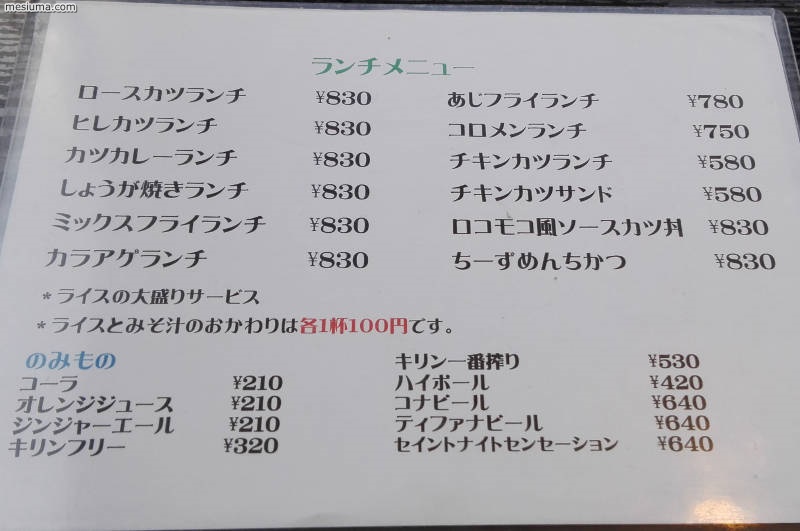 mesiuma.com
ランチメニュー
ロースカツランチ ¥830
ヒレカツランチ ¥830
カツカレーランチ ¥830
しょうが焼きランチ ¥830
ミックスフライランチ ¥830
カラアゲランチ ¥830
あじフライランチ ¥780
コロメンランチ ¥750
チキンカツランチ ¥580
チキンカツサンド ¥580
ロコモコ風ソースカツ丼 ¥830
ちーずめんちかつ ¥830
*ライスの大盛りサービス
*ライスとみそ汁のおかわりは各1杯100円です。
のみもの
コーラ ¥210
オレンジジュース ¥210
ジンジャーエール ¥210
キリンフリー ¥320
キリン一番搾り ¥530
ハイボール ¥420
コナビール ¥640
ティファナビール ¥640
セイントナイトセンセーション ¥640